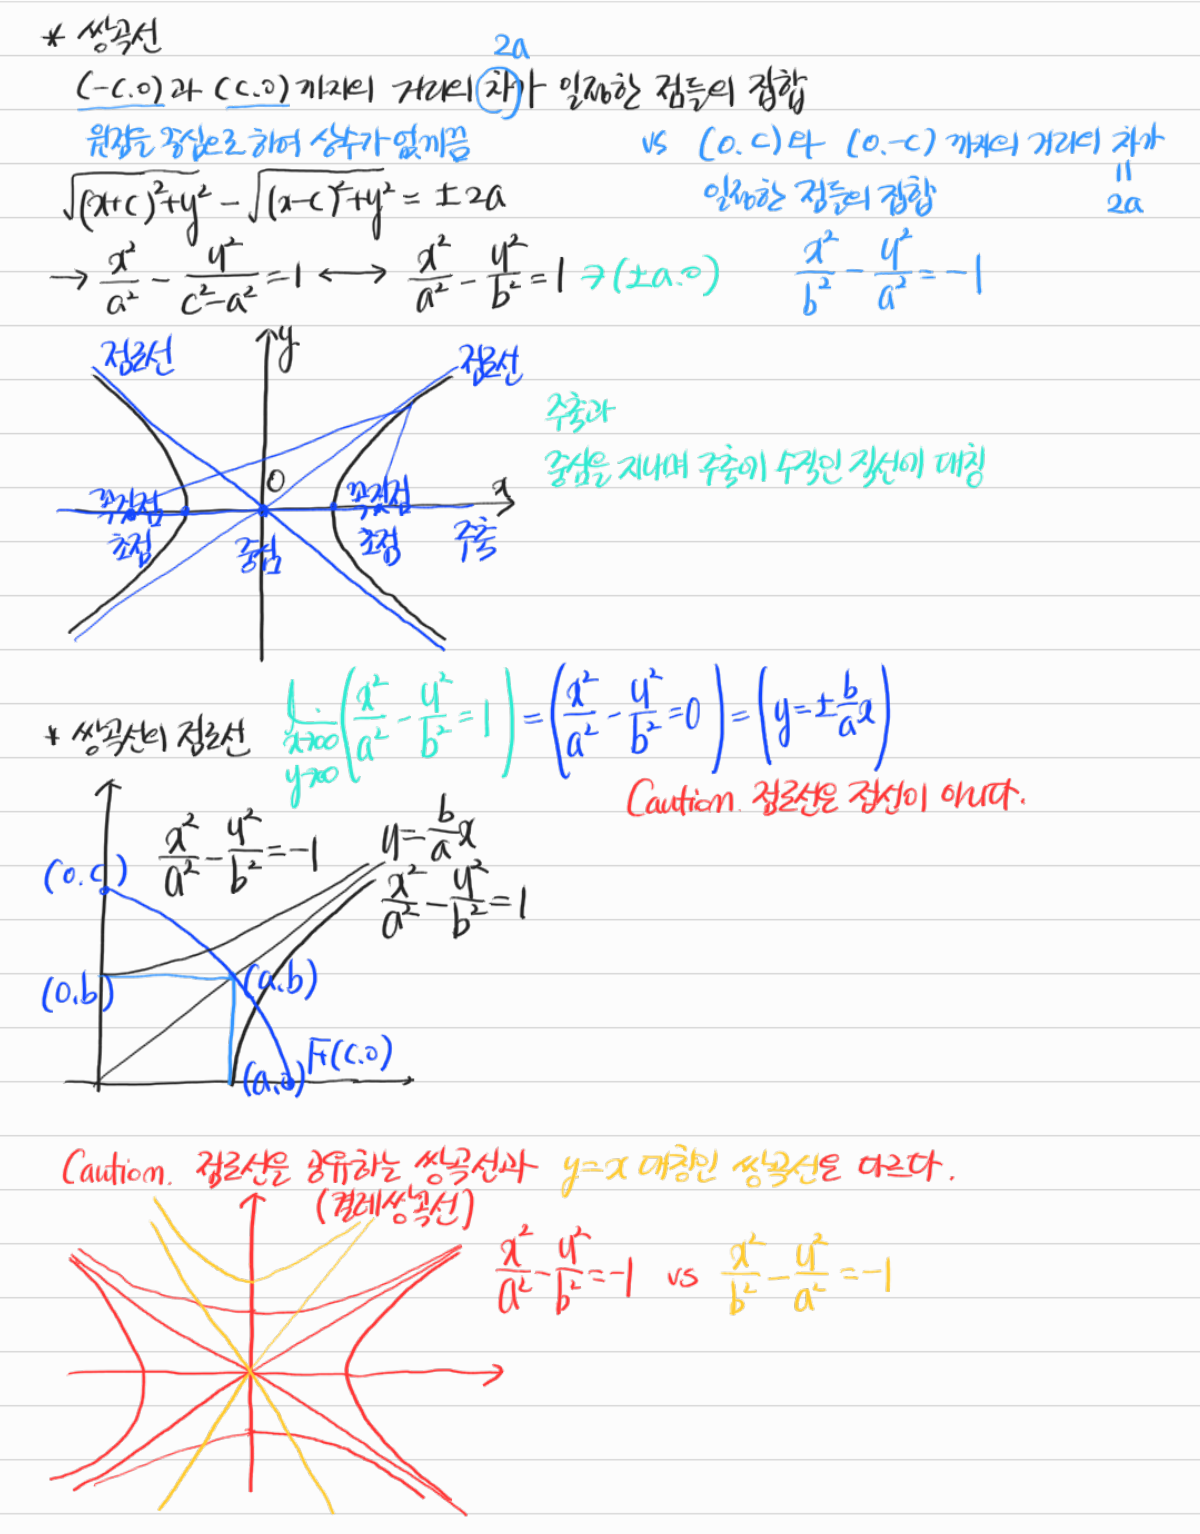 * 쌍곡선
2a
(-c.0)과 (c.0)까지의 거리의 차가 일정한 점들의 집합
원점을 중심으로 하여 상수가 없게끔
vs (0.c)와 (0.-c)까지의 거리의 차가
일정한 점들의 집합
=
2a
√((x+c)²+y²) - √((x-c)²+y²) = ±2a
→ x²/a² - y²/(c²-a²) = 1 ↔ x²/a² - y²/b² = 1 → (±a.0)
x²/b² - y²/a² = -1
점근선
y
점근선
주축과
중심을 지나며 주축에 수직인 직선에 대칭
0
x
꼭짓점
꼭짓점
초점
중심
초점
주축
* 쌍곡선의 점근선
lim x→∞ y→∞ (x²/a² - y²/b² = 1) = (x²/a² - y²/b² = 0) = (y = ±b/a x)
Caution. 점근선은 접선이 아니다.
x²/a² - y²/b² = -1
y = b/a x
(0.c)
x²/a² - y²/b² = 1
(0.b)
(a.b)
F(c.0)
(a.0)
Caution. 점근선을 공유하는 쌍곡선과 y=x 대칭인 쌍곡선은 다르다.
(켤레쌍곡선)
x²/a² - y²/b² = -1 vs x²/b² - y²/a² = -1